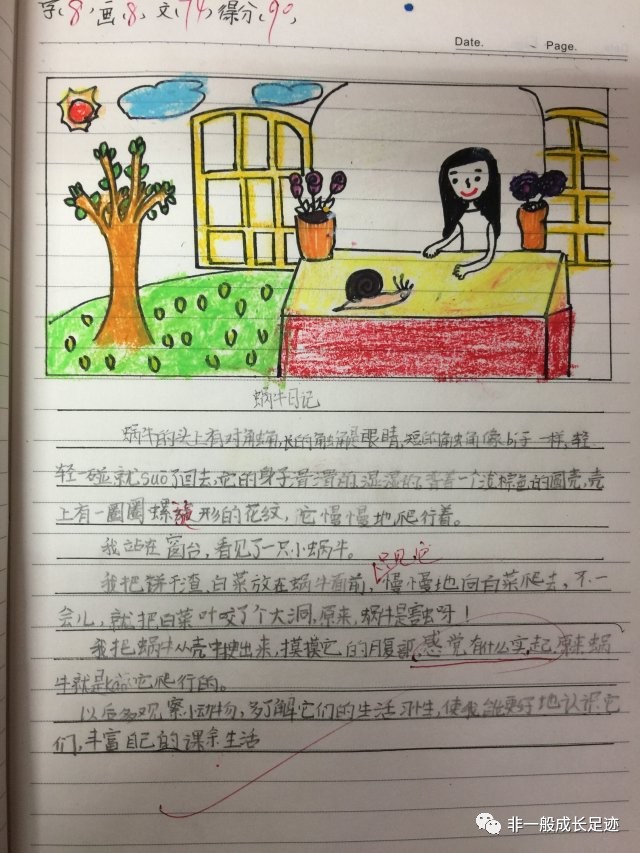 字8,画8,文74,得分90,
Date. Page.
蜗牛日记
蜗牛的头上有对触角,长的触角是眼睛,短的触角像bí子一样,轻
轻一碰就suō了回去,它的身子滑滑的、湿湿的,背着一个浅棕色的圆壳,壳
上有一圈圈螺旋形的花纹,它慢慢地爬行着。
我站在窗台,看见了一只小蜗牛。
只见它
我把饼干渣、白菜放在蜗牛面前,慢慢地向白菜爬去,不一
会儿,就把白菜叶咬了个大洞,原来,蜗牛是害虫呀!
我把蜗牛从壳中拽出来,摸摸它的腹部,感觉有什么突起,原来蜗
牛就是它爬行的。
以后多观察小动物,多了解它们的生活习性,使我能更好地认识它
们,丰富自己的课余生活
非一般成长足迹